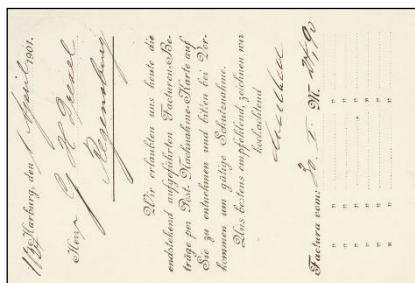 Harburg, den 1 April 1901.
Herrn
Regensburg
Wir erlaubten uns heute die
endstehend aufgeführten Facturen-Be-
träge per Post-Nachnahme-Karte auf
Sie zu entnehmen und bitten bei Vor-
kommen um gütige Schutznahme.
Uns bestens empfehlend, zeichnen wir
hochachtend
Factura vom: M.
" " "
" " "
" " "
" " "
" " "
" " "